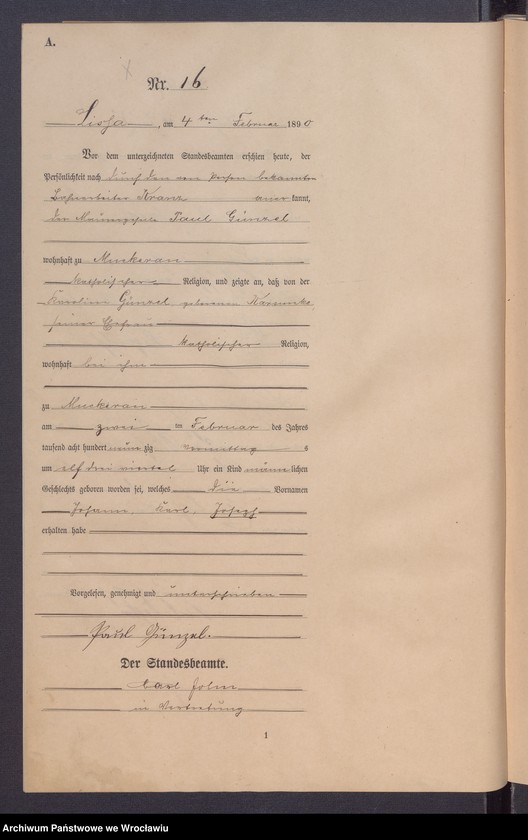 A.
Nr. 16
Lissa, am 4 ten Februar 1890
Vor dem unterzeichneten Standesbeamten erschien heute, der
Persönlichkeit nach durch den von Person bekannten
Kranz anerkannt,
der Paul Günzel
wohnhaft zu Muckerau
katholischer Religion, und zeigte an, daß von der
Karoline Günzel, geborenen
seiner Ehefrau
katholischer Religion,
wohnhaft bei ihm
zu Muckerau
am zwei ten Februar des Jahres
tausend acht hundert neun zig Vormittag s
um elf drei viertel Uhr ein Kind männlichen
Geschlechts geboren worden sei, welches die Vornamen
Johann, Karl, Joseph
erhalten habe
Vorgelesen, genehmigt und unterschrieben
Paul Günzel.
Der Standesbeamte.
Carl
in Vertretung
1
Archiwum Państwowe we Wrocławiu